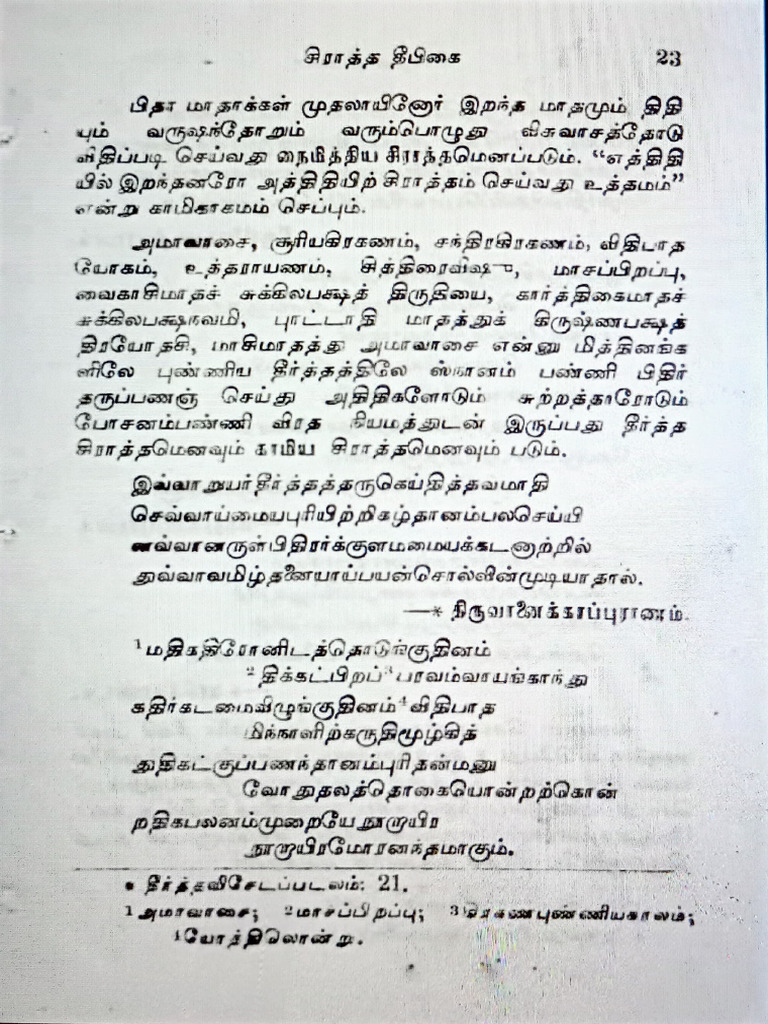 சிராத்த தீபிகை 23
பிதா மாதாக்கள் முதலாயினோர் இறந்த மாதமும் திதி
யும் வருஷந்தோறும் வரும்பொழுது விசுவாசத்தோடு
விதிப்படி செய்வது நைமித்திய சிராத்தமெனப்படும். “எத்திதி
யில் இறந்தனரோ அத்திதியிற் சிராத்தம் செய்வது உத்தமம்”
என்று காமிகாகமம் செப்பும்.
அமாவாசை, சூரியகிரகணம், சந்திரகிரகணம், விதிபாத
யோகம், உத்தராயணம், சித்திரைவிஷு, மாசப்பிறப்பு,
வைகாசிமாதச் சுக்கிலபக்ஷத் திருதியை, கார்த்திகைமாதச்
சுக்கிலபக்ஷநவமி, புரட்டாதி மாதத்துக் கிருஷ்ணபக்ஷத்
திரயோதசி, மாசிமாதத்து அமாவாசை என்னு மித்தினங்க
ளிலே புண்ணிய தீர்த்தத்திலே ஸ்நானம் பண்ணி பிதிர்
தருப்பணஞ் செய்து அதிதிகளோடும் சுற்றத்தாரோடும்
போசனம்பண்ணி விரத நியமத்துடன் இருப்பது தீர்த்த
சிராத்தமெனவும் காமிய சிராத்தமெனவும் படும்.
இவ்வாறுயர்தீர்த்தத்தருகெய்தித்தவமாதி
செவ்வாய்மையபுரியிற்றிகழ்தானம்பலசெய்யி
னவ்வானருள்பிதிரர்க்குளமமையக்கடனாற்றில்
துவ்வாவமிழ்தனையாய்பயன்சொல்லின்முடியாதால்.
—* திருவானைக்காப்புராணம்.
1 மதிகதிரோனிடத்தொடுங்குதினம்
2 திக்கட்பிறப் 3 பரவம்வாயங்காந்து
கதிர்கடமைவிழுங்குதினம் 4 விதிபாத
மிந்நாளிற்கருதிமூழ்கித்
துதிகட்குப்பணந்தானம்புரிதன்மனு
வோதுதலத்தொகையொன்றற்கொன்
றதிகபலனம்முறையேநூறாயிர
நூறாயிரமோரனந்தமாகும்.
* தீர்த்தவிசேடப்படலம்: 21.
1 அமாவாசை; 2 மாசப்பிறப்பு; 3 கிரகணபுண்ணியகாலம்;
4 யோகத்திலொன்று.